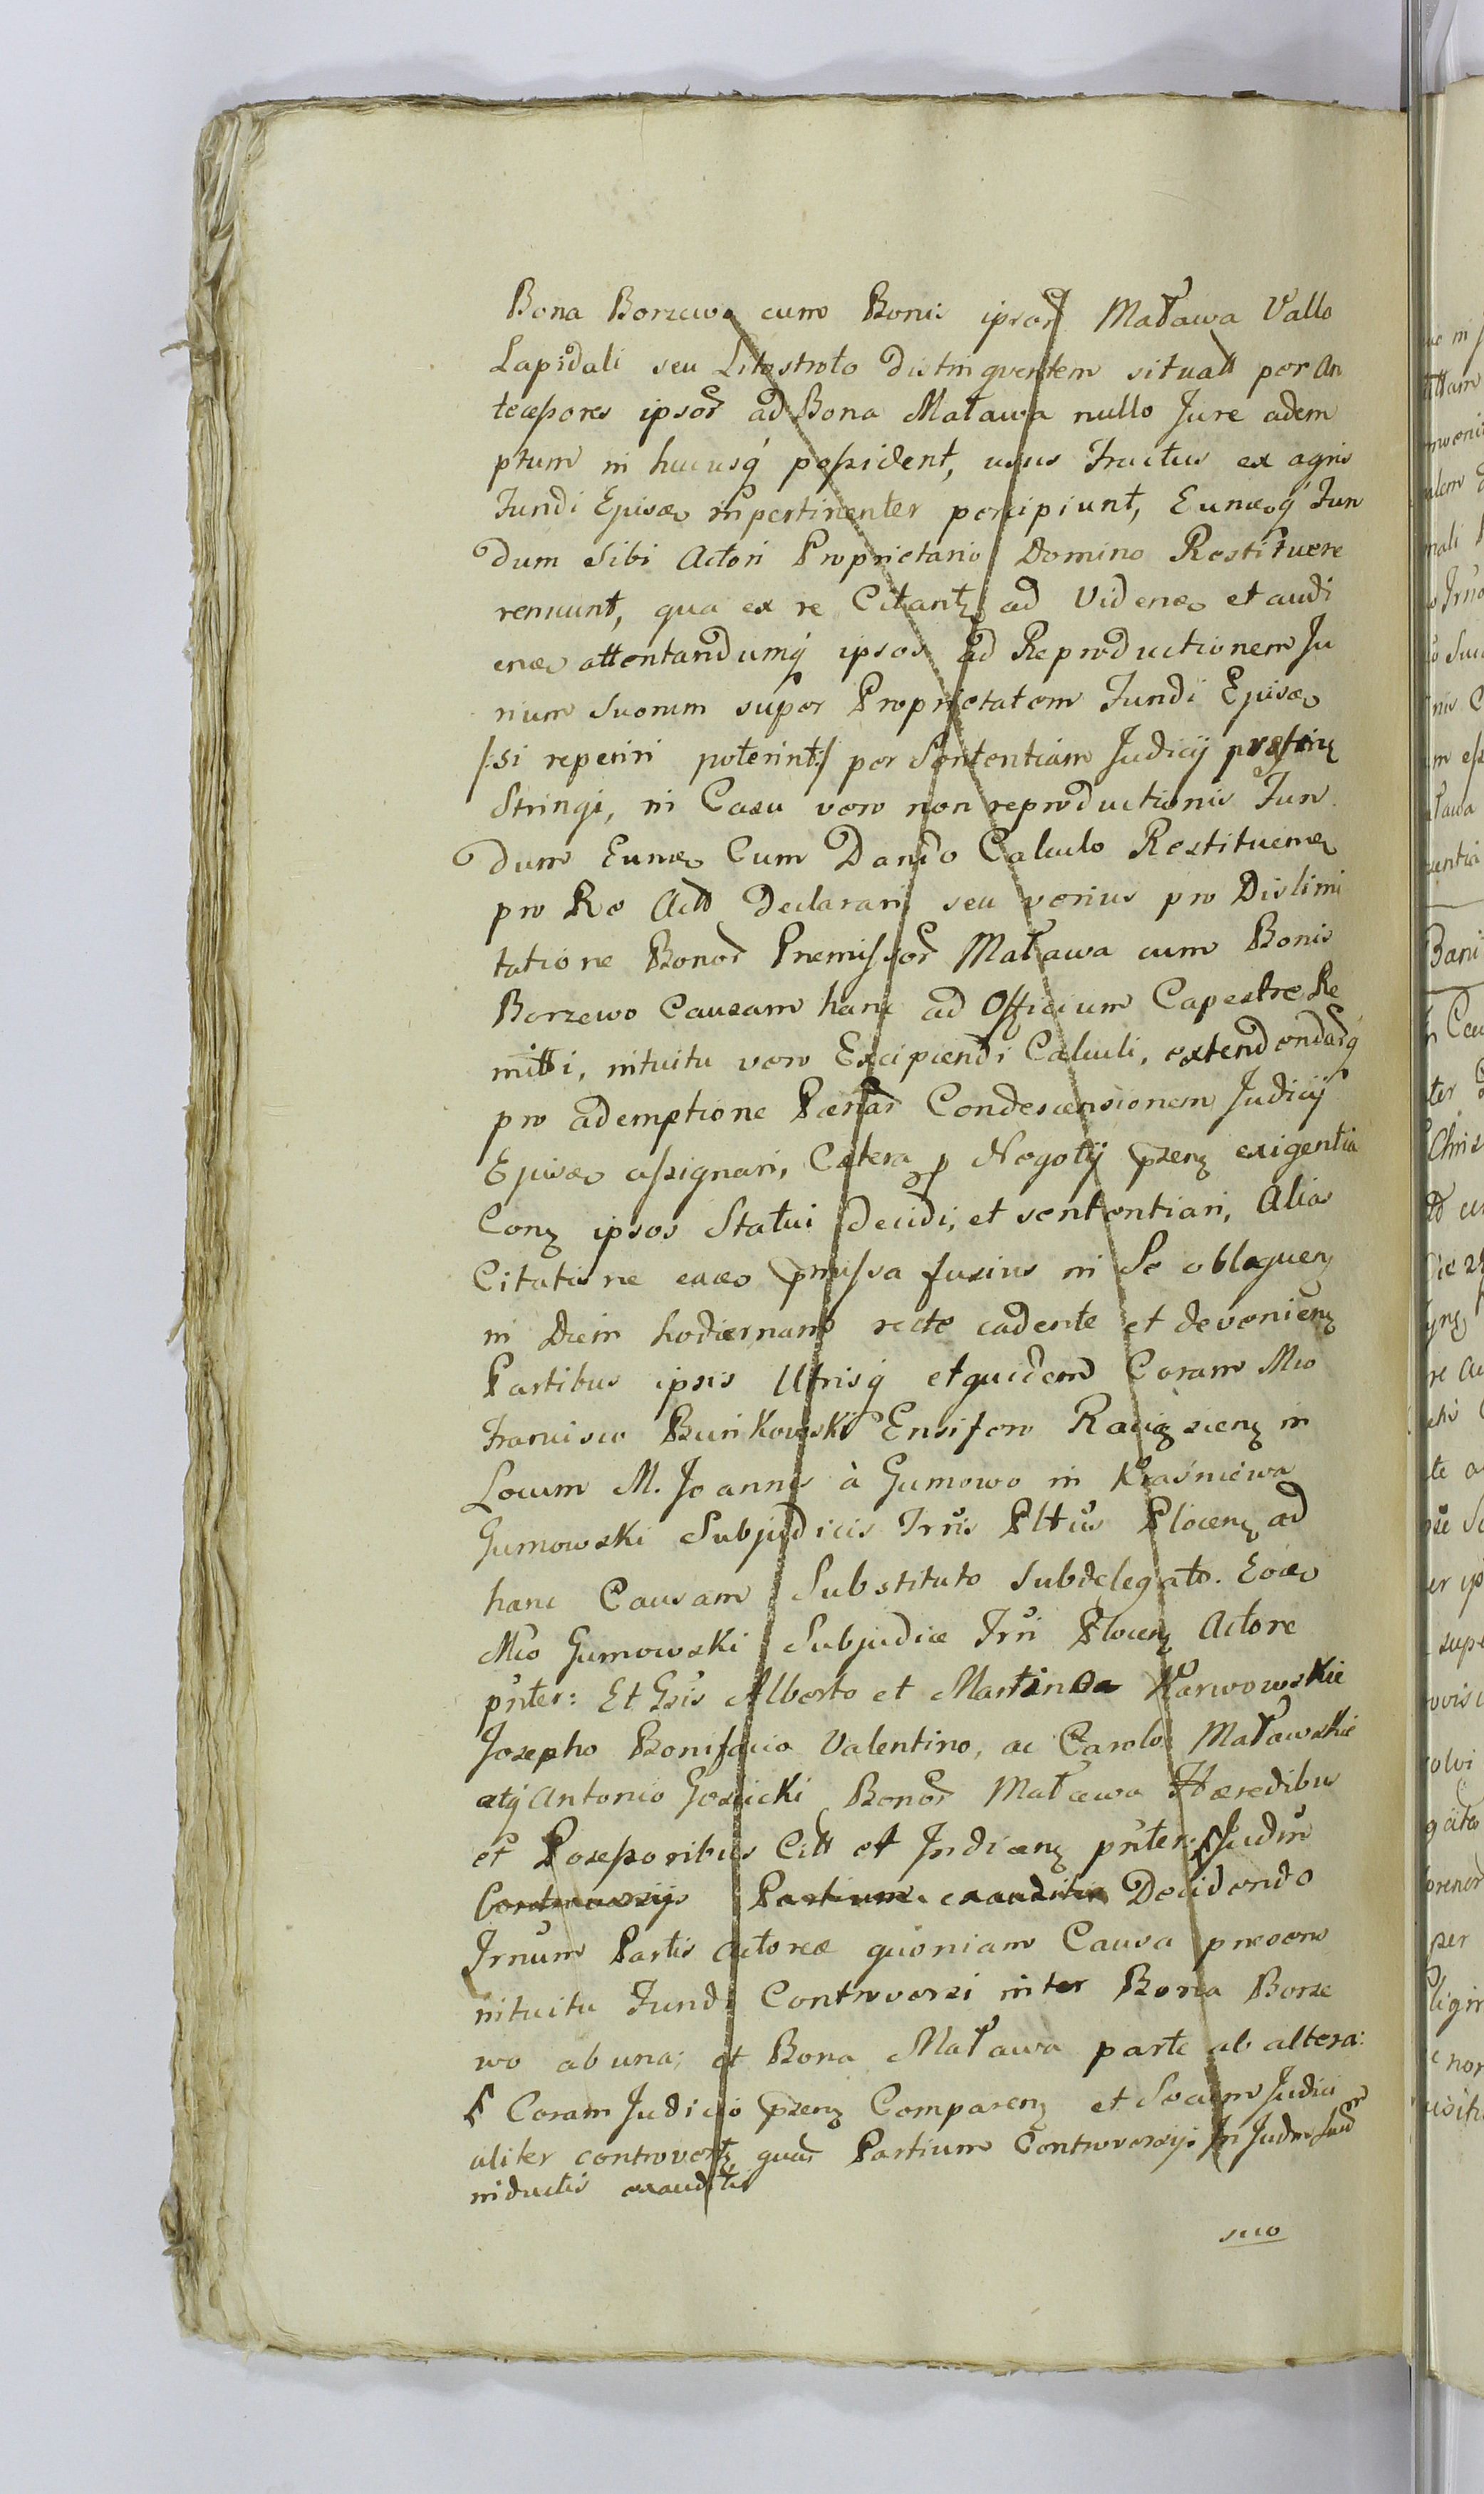 Bona Borzewo cum Bonis ipsor Maława Vallo
Lapidali seu Litostroto distinguentem situatt per An
tecessores ipsor ad Bona Maława nullo Jure adem
ptum in hucusq possident, usus fructus ex agris
Fundi Ejusdo impertinenter percipiunt, Eumdoq Fun
dum Sibi Actori Proprietario Domino Restituere
renuunt, qua ex re Citantz ad Videndo et audi
endo attentandumq ipsos ad Reproductionem Ju
rium Suorum super Proprietatem Fundi Ejusdo
/:si reperiri poterint:/ per Sententiam Judicij
Stringi, in Casu vero non reproductionis Fun
dum Eumdo Cum Dando Calculo Restituendz
pro Re Actt Declarari seu verius pro Dislimi
tatione Bonor Premissor Maława cum Bonis
Borzewo Causam hanc ad Officium Capestre Re
mitti, intuitu vero Excipiendi Calculi, extendendarq
pro ademptione Paenar Condescensionem Judicij
Ejusdo assignari, Cætera p Negotij przenz exigentia
Conz ipsos Statui Decidi, et sententiari, Alias
Citatione eado pmissa fusius in Se obloquenz
in Diem hodiernam recte cadente et devenienz
Partibus ipsis Utrisq etquidem Coram Mco
Francisco Bońkowski Ensifero Raciązienz in
Locum M. Joannis à Gumowo in Kraśniewa
Gumowski Subjudicis Trris Pltus Plocenz ad
hanc Causam Substituto Subdelegato. Eodo
Mco Gumowski Subjudice Trri Plocenz Actore
pnter: Et Gsis Alberto et Martino Karwowskie
Josepho Bonifacio Valentino, ac Carolo Maławskie
atq Antonio Gosiicki Bonor Maława Hæredibus
et Possessoribus Citt et Indicanz pnter: Judm
Controversijs Partium exauditis Decidendo
Trnum Partis Actoreæ quoniam Causa presens
intuitu Fundi Controversi inter Bona Borze
wo ab una; et Bona Maława parte ab altera:
Coram Judicio przenz Comparenz et Secum Judici
aliter controvertz quar Partium Controversijs In Judm
inductis exauditis
suo